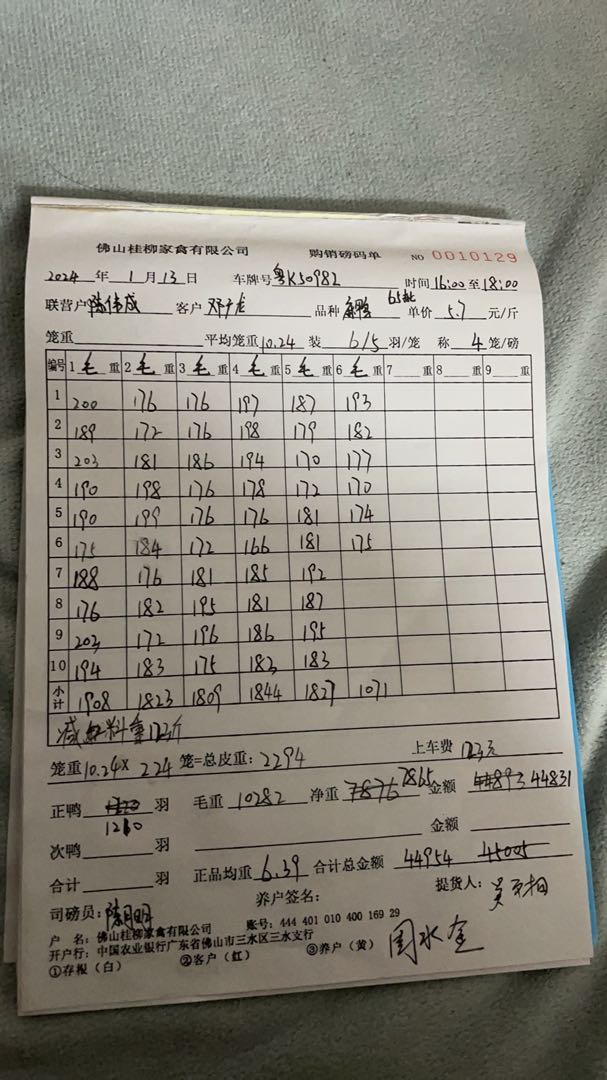 佛山桂柳家禽有限公司 购销磅码单 NO 0010129
2024 年 1 月 13 日 车牌号 粤K50982 时间 16:00 至 18:00
联营户 陈伟成 客户 品种 麻鸭 65批 单价 5.7 元/斤
笼重 平均笼重 10.24 装 6/5 羽/笼 称 4 笼/磅
编号 1 毛 重 2 毛 重 3 毛 重 4 毛 重 5 毛 重 6 毛 重 7 重 8 重 9 重
1 200 176 176 197 187 193
2 189 172 176 198 179 182
3 203 181 186 194 170 177
4 190 198 176 178 172 170
5 190 199 176 176 181 174
6 175 184 172 166 181 175
7 188 176 181 185 192
8 176 182 195 181 187
9 203 172 196 186 195
10 194 183 175 182 183
小计 1908 1823 1809 1844 1827 1071
减 料重 123斤
笼重 10.24 × 224 笼=总皮重: 2294 上车费 123元
正鸭 1210 羽 毛重 10282 净重 7876 7865 金额 44893 44831
次鸭 羽 金额
合计 羽 正品均重 6.39 合计总金额 44954 45005
司磅员: 陈明 养户签名: 提货人:
户 名: 佛山桂柳家禽有限公司 账号: 444 401 010 400 169 29
开户行: 中国农业银行广东省佛山市三水区三水支行
①存根（白） ②客户（红） ③养户（黄） 周水金